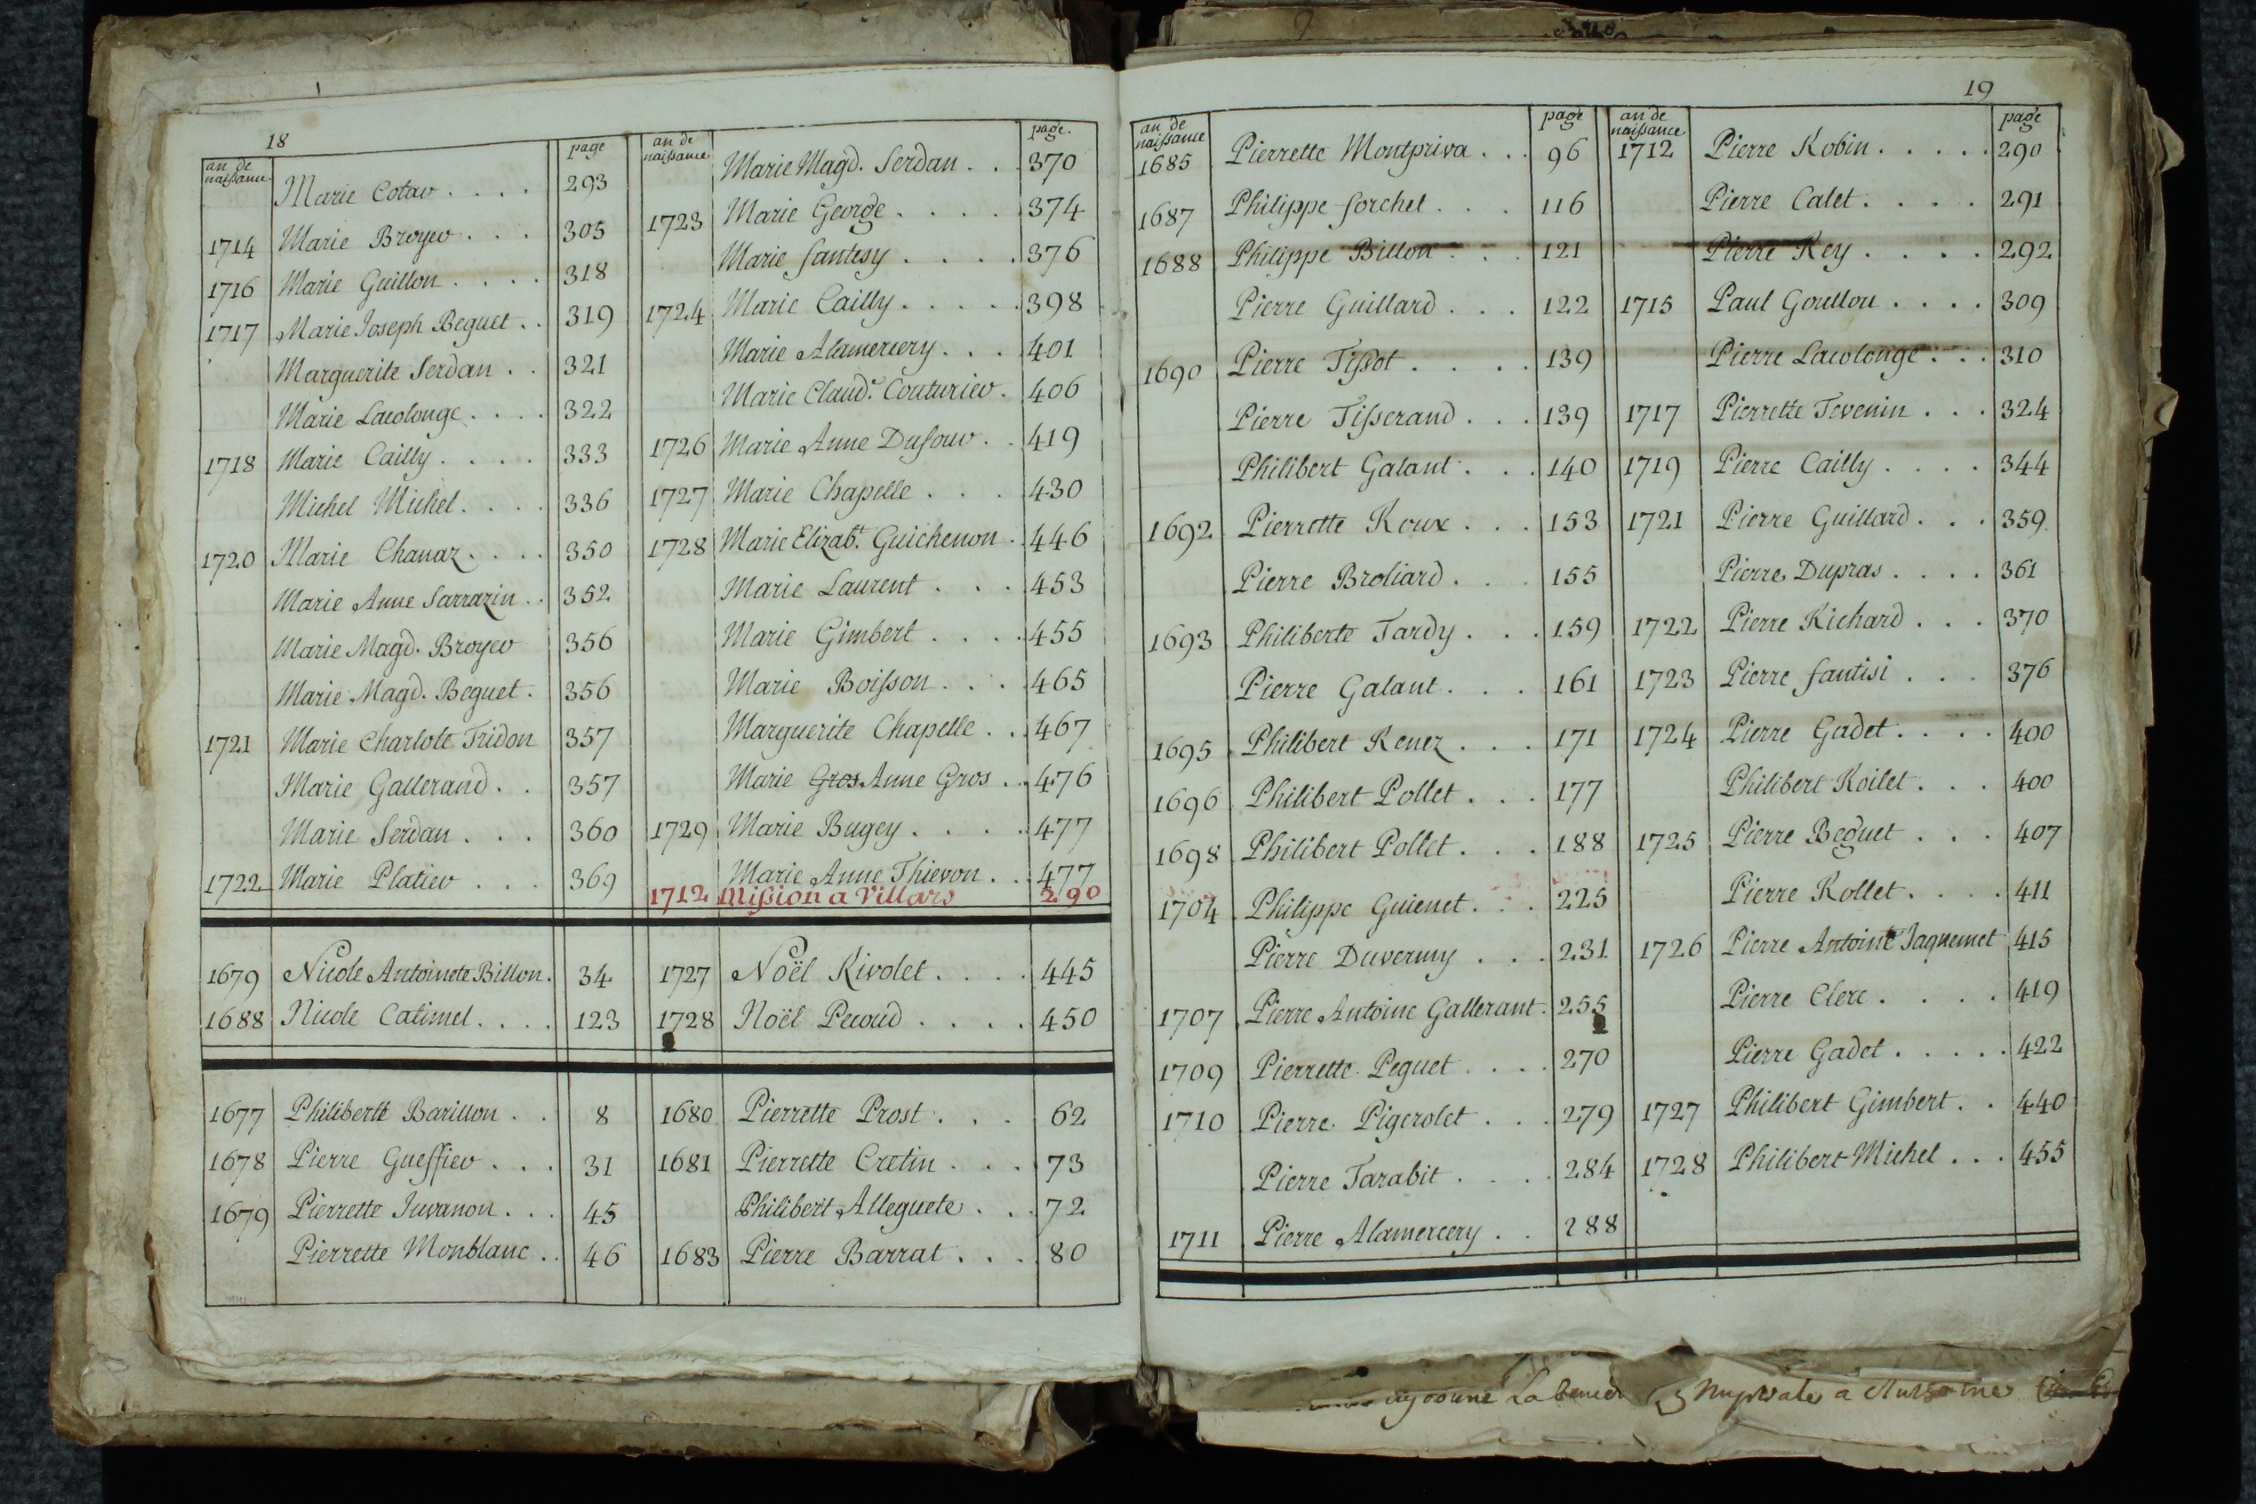 18
an de naissance page
Marie Cotar.... 293
1714 Marie Broyer... 305
1716 Marie Guillon.... 318
1717 Marie Joseph Beguet.. 319
Marguerite Serdan.. 321
Marie Lacolonge.... 322
1718 Marie Cailly.... 333
Michel Michel.... 336
1720 Marie Chanaz.... 350
Marie Anne Sarrazin.. 352
Marie Magd. Broyer 356
Marie Magd. Beguet. 356
1721 Marie Charlote Tridon 357
Marie Gallerand.. 357
Marie Serdan... 360
1722 Marie Platier... 369
an de naissance page.
Marie Magd. Serdan... 370
1723 Marie George.... 374
Marie fantesy.... 376
1724 Marie Cailly..... 398
Marie Alamercery... 401
Marie Claud.e Couturier. 406
1726 Marie Anne Dufour.. 419
1727 Marie Chapelle... 430
1728 Marie Elizab.t Guichenon. 446
Marie Laurent... 453
Marie Gimbert.... 455
Marie Boisson.... 465
Marguerite Chapelle.. 467
Marie Gros Anne Gros.. 476
1729 Marie Bugey.... 477
Marie Anne Thievon.. 477
1712 Mission a Villars 290
1679 Nicole Antoinete Billon. 34
1688 Nicole Catimel.... 123
1727 Noël Rivolet.... 445
1728 Noël Pecoud.... 450
1677 Philiberte Barillon.. 8
1678 Pierre Gueffier... 31
1679 Pierrette Juvanon... 45
Pierrette Monblanc.. 46
1680 Pierrette Prost.... 62
1681 Pierrette Cretin... 73
Philibert Alleguete... 72
1683 Pierre Barrat.... 80
19
an de naissance page
1685 Pierrette Montpriva... 96
1687 Philippe forchet... 116
1688 Philippe Billon... 121
Pierre Guillard... 122
1690 Pierre Tissot.... 139
Pierre Tisserand... 139
Philibert Galant... 140
1692 Pierrette Roux... 153
Pierre Broliard... 155
1693 Philiberte Tardy... 159
Pierre Galant... 161
1695 Philibert Renez... 171
1696 Philibert Pollet... 177
1698 Philibert Pollet... 188
1704 Philippe Guienet... 225
Pierre Duvernay... 231
1707 Pierre Antoine Gallerant. 255
1709 Pierrette Peguet.... 270
1710 Pierre Pigerolet... 279
Pierre Tarabit.... 284
1711 Pierre Alamercery.. 288
an de naissance page
1712 Pierre Robin..... 290
Pierre Calet.... 291
Pierre Rey.... 292
1715 Paul Goullon.... 309
Pierre Lacolonge... 310
1717 Pierrette Tevenin... 324
1719 Pierre Cailly.... 344
1721 Pierre Guillard... 359
Pierre Dupras.... 361
1722 Pierre Richard... 370
1723 Pierre fantisi... 376
1724 Pierre Gadet.... 400
Philibert Roilet... 400
1725 Pierre Beguet... 407
Pierre Rollet.... 411
1726 Pierre Antoine Jaquemet 415
Pierre Clerc.... 419
Pierre Gadet..... 422
1727 Philibert Gimbert.. 440
1728 Philibert Michel... 455